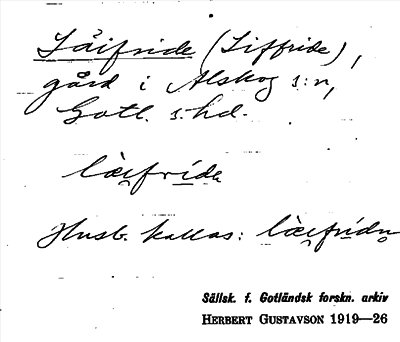 Läifride (Liffride),
gård i Alskog s:n,
Gotl. s. hd.
læi̯frída
Husb. kallas: læi̯frídn̥
Sällsk. f. Gotländsk forskn. arkiv
HERBERT GUSTAVSON 1919—26